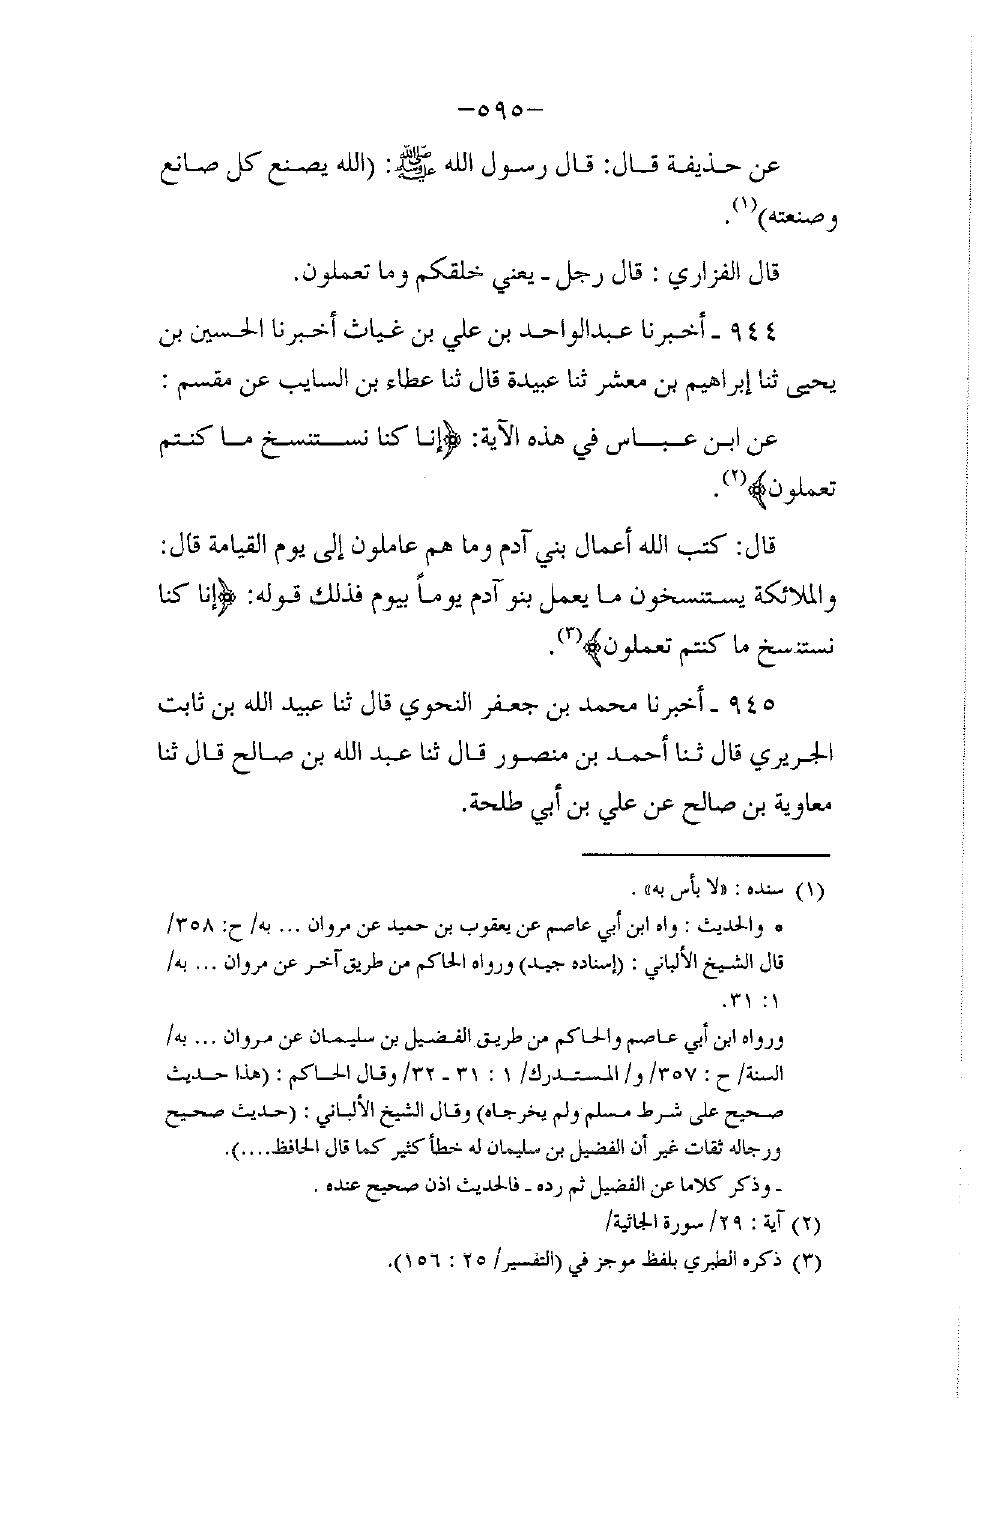 –٥٩٥–
عن حـذيفة قـال: قـال رسـول الله ﷺ: (الله يصنـع كل صـانـع
وصنعته)(١).
قال الفزاري : قال رجل - يعني خلقكم وما تعملون.
٩٤٤ - أخبرنا عبدالواحد بن علي بن غياث أخبرنا الحسين بن
يحيى ثنا إبراهيم بن معشر ثنا عبيدة قال ثنا عطاء بن السايب عن مقسم :
عن ابن عبـاس في هذه الآية: ﴿إنـا كنا نستنسـخ مـا كنتم
تعملون﴾(٢).
قال: كتب الله أعمال بني آدم وما هم عاملون إلى يوم القيامة قال:
والملائكة يستنسخون ما يعمل بنو آدم يوماً بيوم فذلك قوله: ﴿إنا كنا
نستنسخ ما كنتم تعملون﴾(٣).
٩٤٥ - أخبرنا محمد بن جعفر النحوي قال ثنا عبيد الله بن ثابت
الجريري قال ثنا أحمـد بن منصـور قـال ثنا عبـد الله بن صـالح قـال ثنا
معاوية بن صالح عن علي بن أبي طلحة.
(١) سنده : «لا بأس به» .
• والحديث : واه ابن أبي عاصم عن يعقوب بن حميد عن مروان ... به/ ح: ٣٥٨/
قال الشيخ الألباني : (إسناده جيد) ورواه الحاكم من طريق آخر عن مروان ... به/
١: ٣١.
ورواه ابن أبي عاصم والحاكم من طريق الفضيل بن سليمان عن مروان ... به/
السنة/ ح : ٣٥٧/ و/ المستدرك/ ١ : ٣١ - ٣٢/ وقال الحاكم : (هذا حديث
صحيح على شرط مسلم ولم يخرجاه) وقال الشيخ الألباني : (حديث صحيح
ورجاله ثقات غير أن الفضيل بن سليمان له خطأ كثير كما قال الحافظ....).
- وذكر كلاما عن الفضيل ثم رده - فالحديث اذن صحيح عنده .
(٢) آية : ٢٩/ سورة الجاثية/
(٣) ذكره الطبري بلفظ موجز في (التفسير/ ٢٥ : ١٥٦).